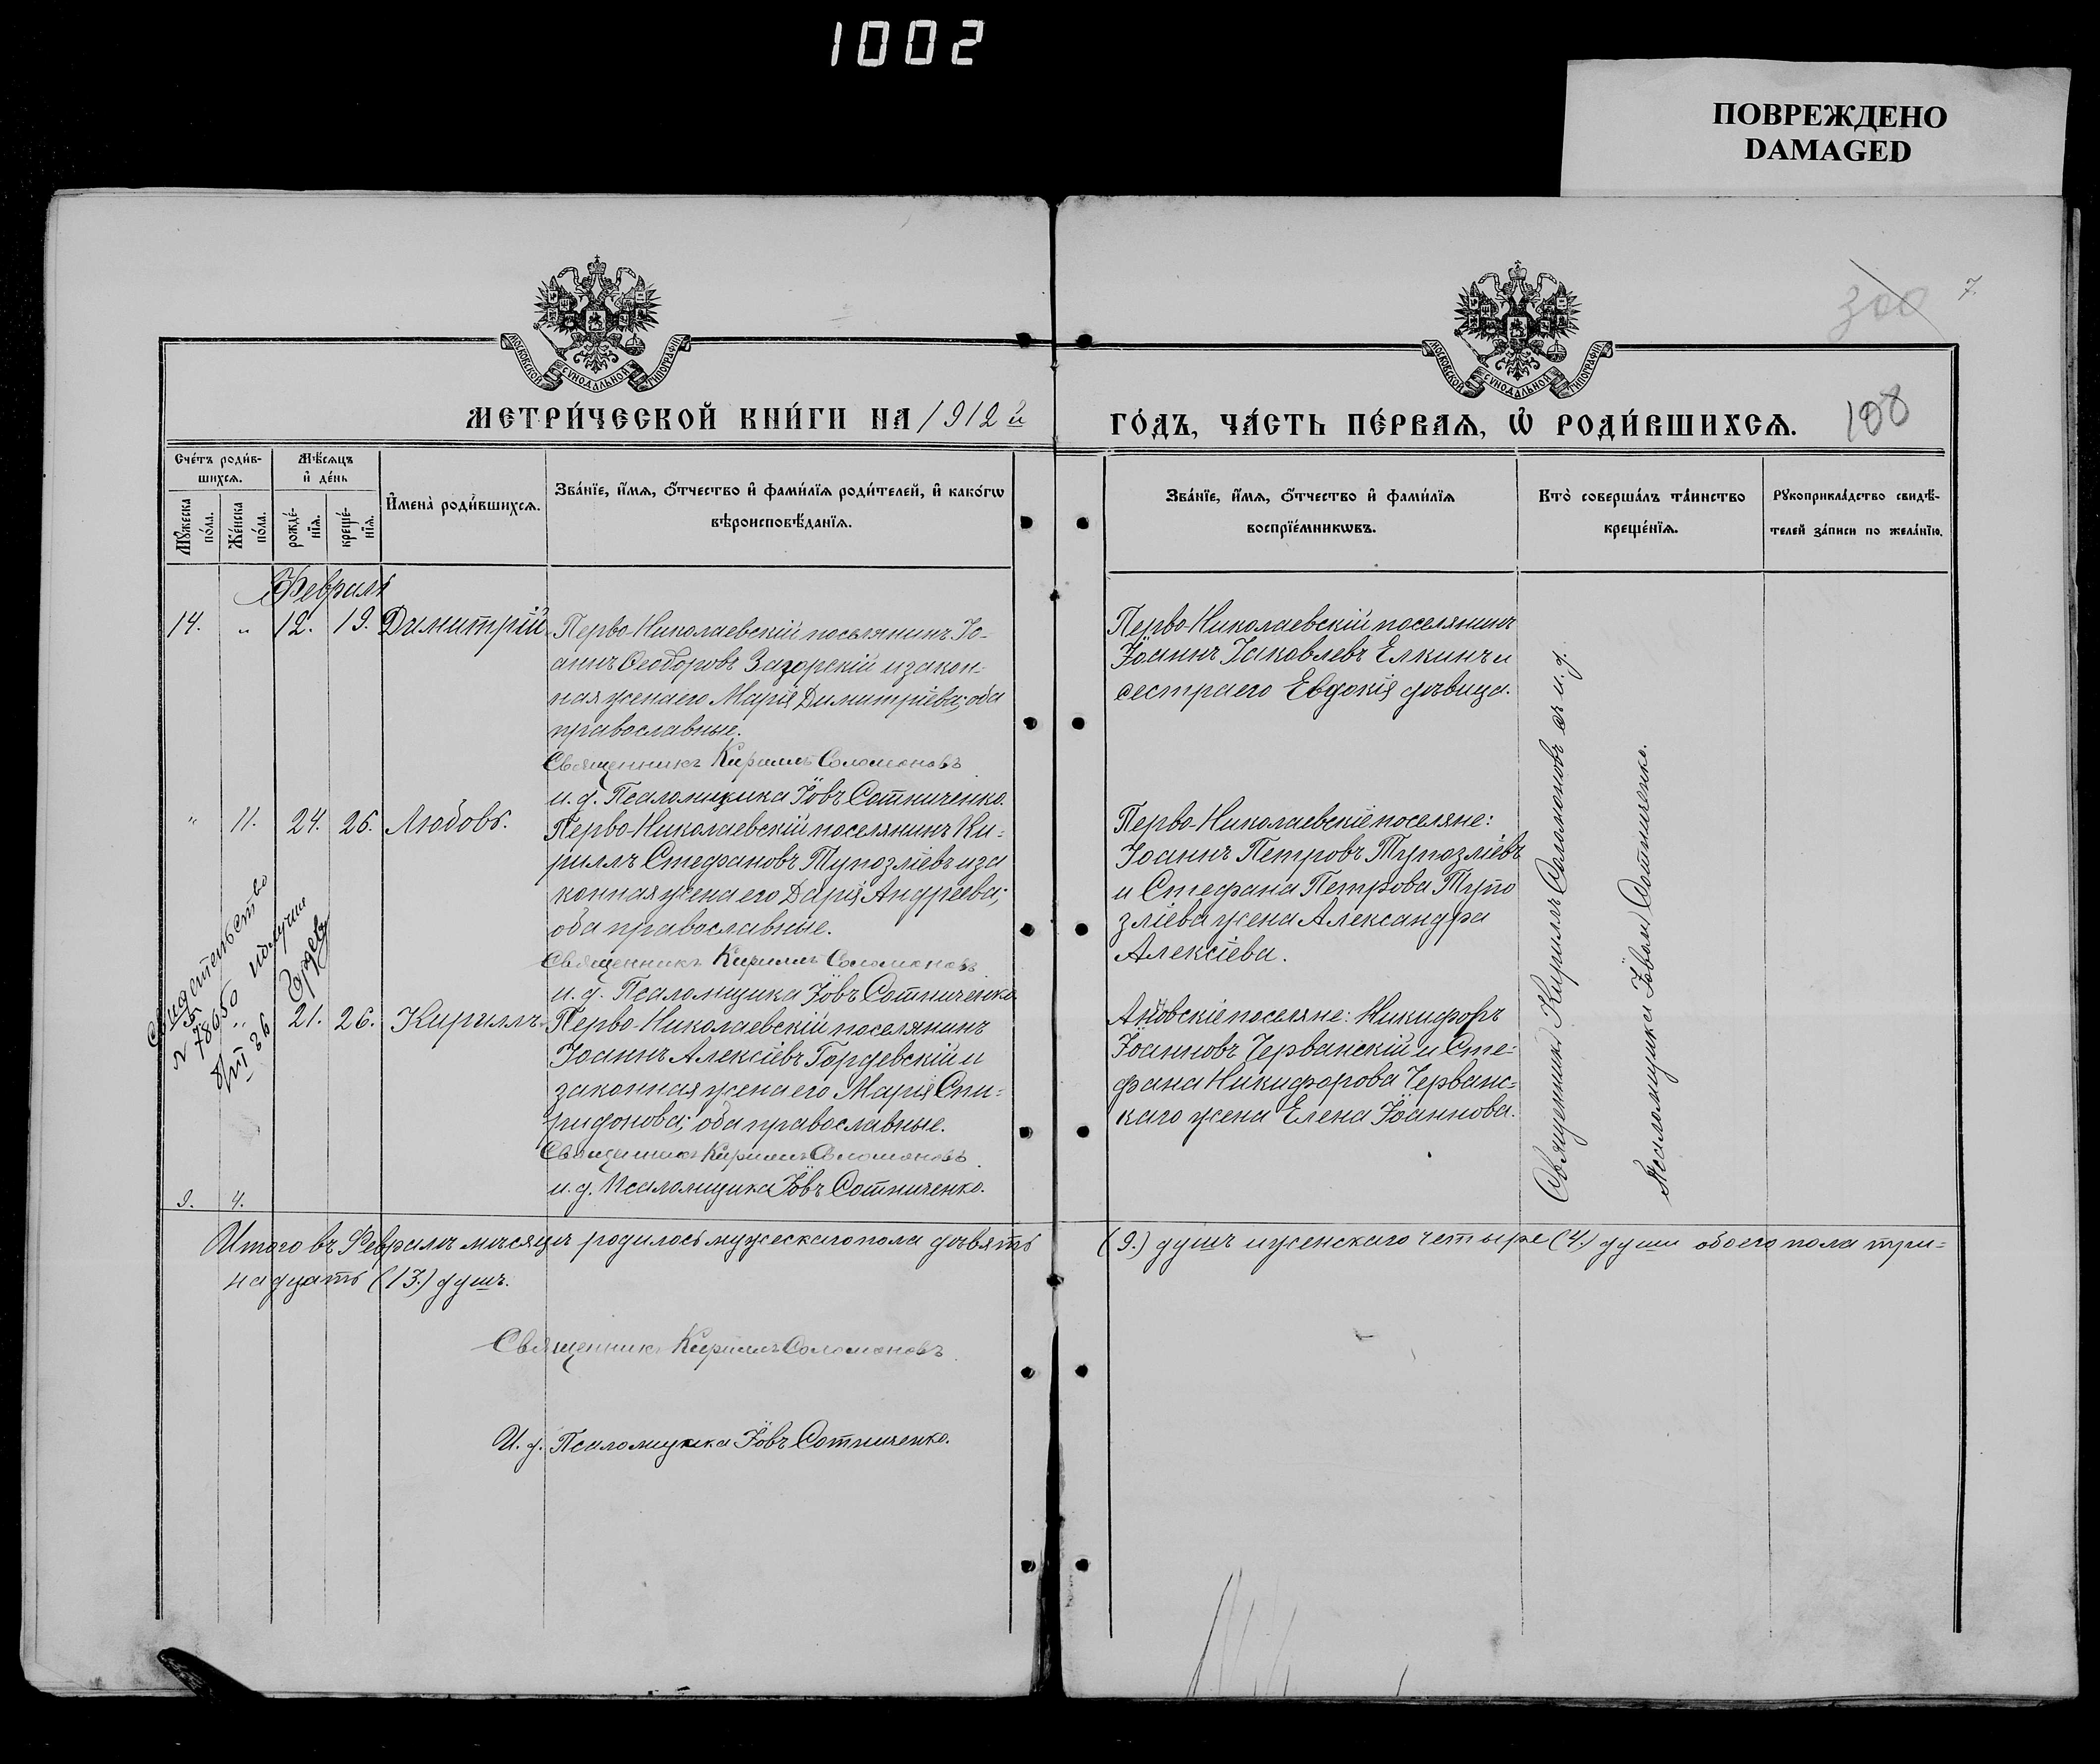 1002
ПОВРЕЖДЕНО
DAMAGED
300
7.
МОСКОВСКОЙ СѴНОДАЛЬНОЙ ТИПОГРАФІИ
МОСКОВСКОЙ СѴНОДАЛЬНОЙ ТИПОГРАФІИ
МЕТРИ́ЧЕСКОЙ КНИ́ГИ НА 1912 й
ГО́ДЪ, ЧА́СТЬ ПЕ́РВАЯ, Ѡ҆ РОДИ́ВШИХСЯ.
108
Сче́тъ роди́в-
шихся.
Мѣ́сяцъ
и҆ де́нь
Мꙋ́жеска по́ла.
Же́нска по́ла.
рожде́-
нїя.
креще́-
нїя.
И҆мена̀ роди́вшихся.
Зва́нїе, и҆́мя, ѻ҆́тчество и҆ фами́лїя роди́телей, и҆ како́гѡ
вѣроисповѣ́данїя.
Зва́нїе, и҆́мя, ѻ҆́тчество и҆ фами́лїя
воспрїе́мникѡвъ.
Кто̀ соверша́лъ та́инство
креще́нїя.
Рꙋкоприкла́дство свидѣ́-
телей за́писи по жела́нїю.
Февраль
14. " 12. 19. Димитрій
Перво-Николаевскій поселянинъ Іо-
аннъ Ѳеодоровъ Загорскій и закон-
ная жена его Марія Димитріева; оба
православные.
Священникъ Кириллъ Соломоновъ
и. д. Псаломщика Іовъ Сотниченко.
Перво-Николаевскій поселянинъ
Іоаннъ Іаковлевъ Елкинъ и
сестра его Евдокія дѣвица.
" 11. 24. 26. Любовь.
Перво-Николаевскій поселянинъ Ки-
риллъ Стефановъ Тупозліевъ и за
конная жена его Дарія Андреева;
оба православные.
Священникъ Кириллъ Соломоновъ
и. д. Псаломщика Іовъ Сотниченко
Перво-Николаевскіе поселяне:
Іоаннъ Петровъ Тупозліевъ
и Стефана Петрова Тупо
зліева жена Александра
Алексіева.
Свидетельство
№ 7865 получил
26
" 21. 26. Кириллъ.
Перво-Николаевскій поселянинъ
Іоаннъ Алексіевъ Гордевскій и
законная жена его Марія Спи-
ридонова; оба православные.
Священникъ Кириллъ Соломоновъ
и. д. Псаломщика Іовъ Сотниченко.
поселяне: Никифоръ
Іоанновъ Черванскій и Сте-
фана Никифорова Черванс-
каго жена Елена Іоаннова.
Священникъ Кириллъ Соломоновъ съ и. д.
Псаломщика Іовом Сотниченко.
9. 4.
Итого въ Февралѣ мѣсяцѣ родилось мужескаго пола дѣвять (9.) душъ и женскаго четыре (4.) души обоего пола три-
надцать (13.) душъ.
Священникъ Кириллъ Соломоновъ
И. д. Псаломщика Іовъ Сотниченко.